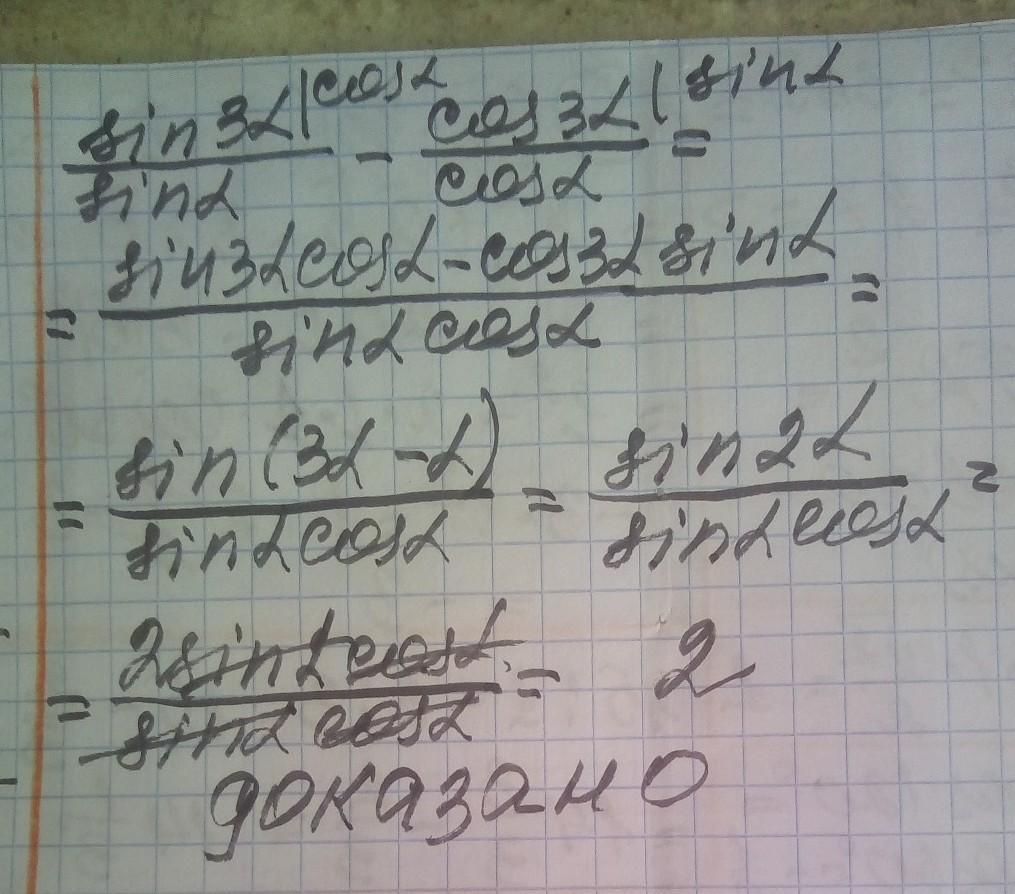 sin3α|cosα / sinα - cos3α|sinα / cosα =
= sin3αcosα-cos3αsinα / sinαcosα =
= sin(3α-α) / sinαcosα = sin2α / sinαcosα =
= 2sinαcosα / sinαcosα = 2
доказано